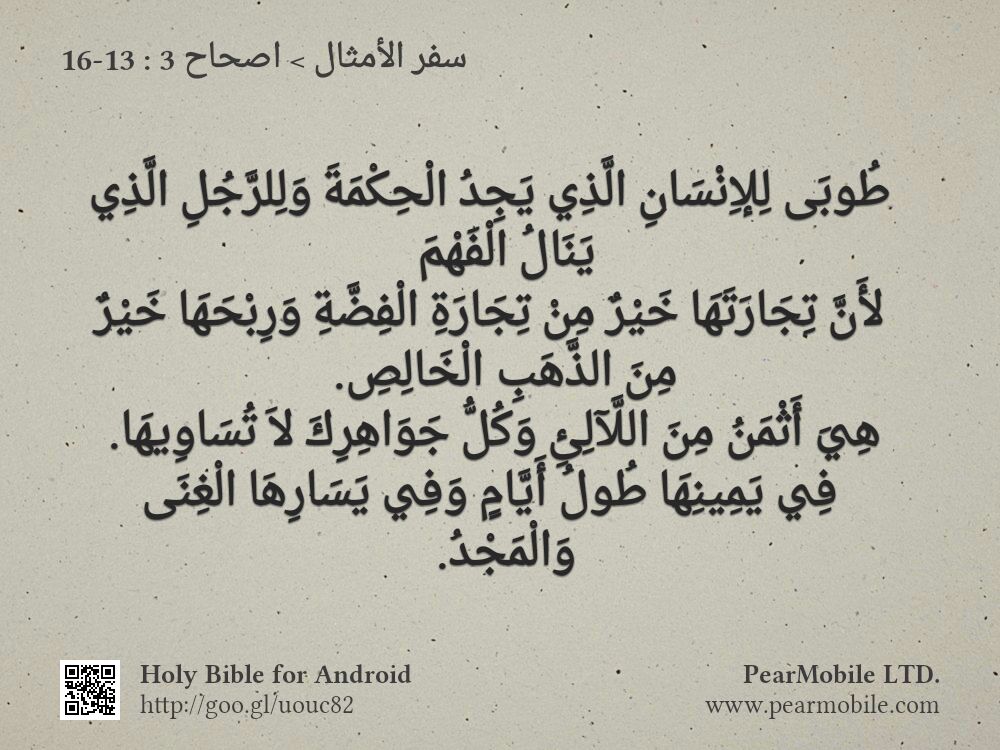 سفر الأمثال > اصحاح 3 : 13-16
طُوبَى لِلإِنْسَانِ الَّذِي يَجِدُ الْحِكْمَةَ وَلِلرَّجُلِ الَّذِي
يَنَالُ الْفَهْمَ
لأَنَّ تِجَارَتَهَا خَيْرٌ مِنْ تِجَارَةِ الْفِضَّةِ وَرِبْحَهَا خَيْرٌ
مِنَ الذَّهَبِ الْخَالِصِ.
هِيَ أَثْمَنُ مِنَ اللَّآلِئِ وَكُلُّ جَوَاهِرِكَ لاَ تُسَاوِيهَا.
فِي يَمِينِهَا طُولُ أَيَّامٍ وَفِي يَسَارِهَا الْغِنَى
وَالْمَجْدُ.
Holy Bible for Android
http://goo.gl/uouc82
PearMobile LTD.
www.pearmobile.com